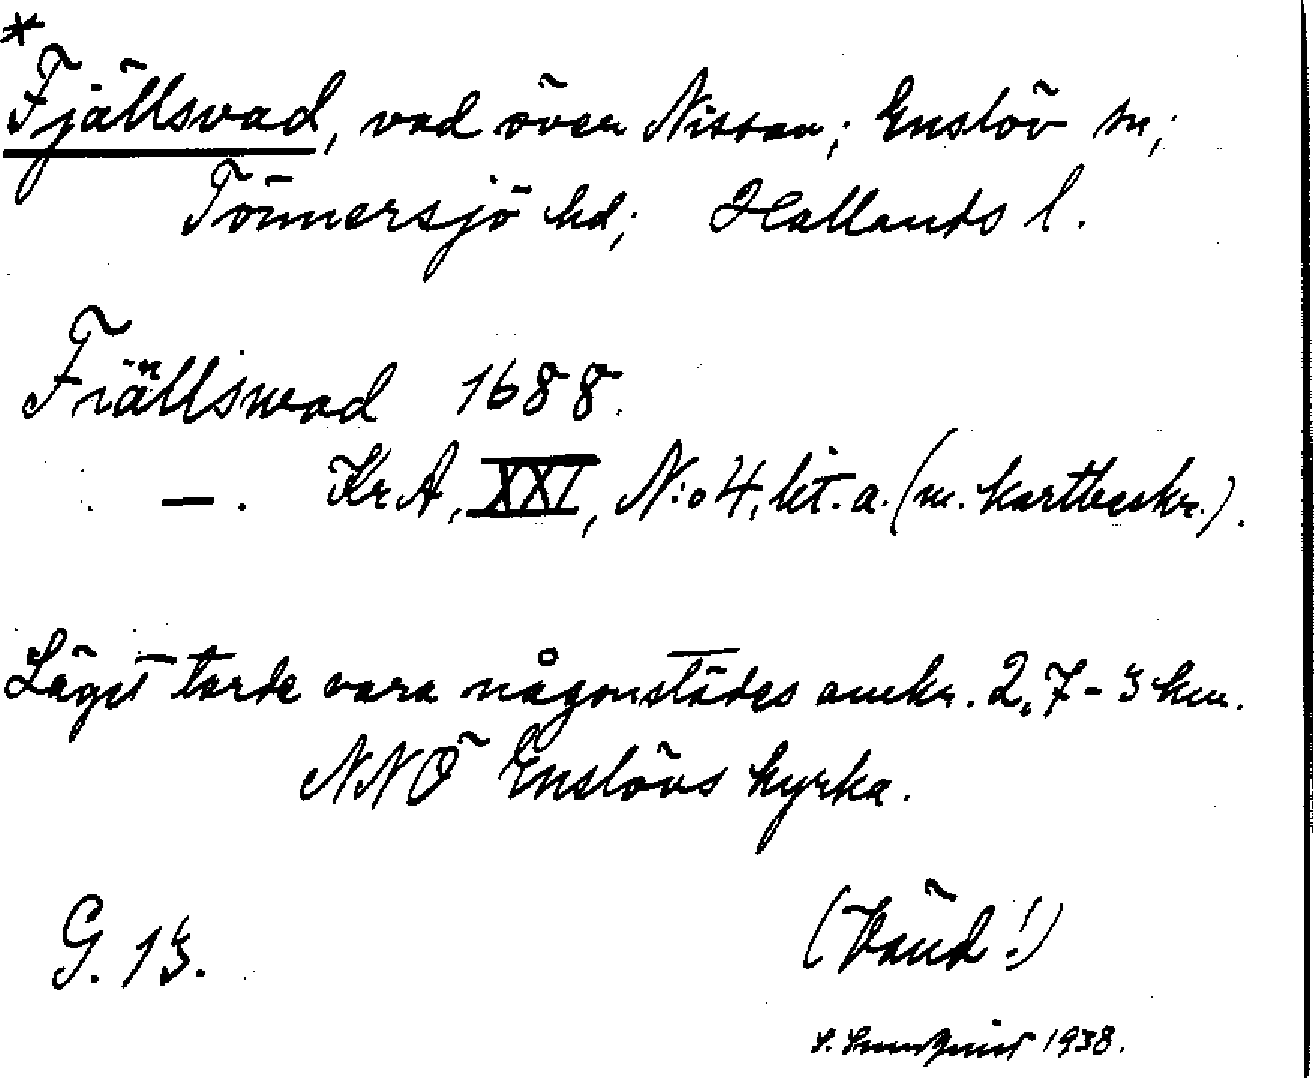 *
Fjällsvad, vad över Nissan; Enslöv sn;
Tönnersjö hd; Hallands l.
Fiällswad 1688.
—. Kr A, XXI, N:o 4, lit. a. (m. kartbeskr.).
Läget torde vara någonstädes omkr. 2,7-3 km.
NNÖ Enslövs kyrka.
G. 13.
(Vänd!)
1938.